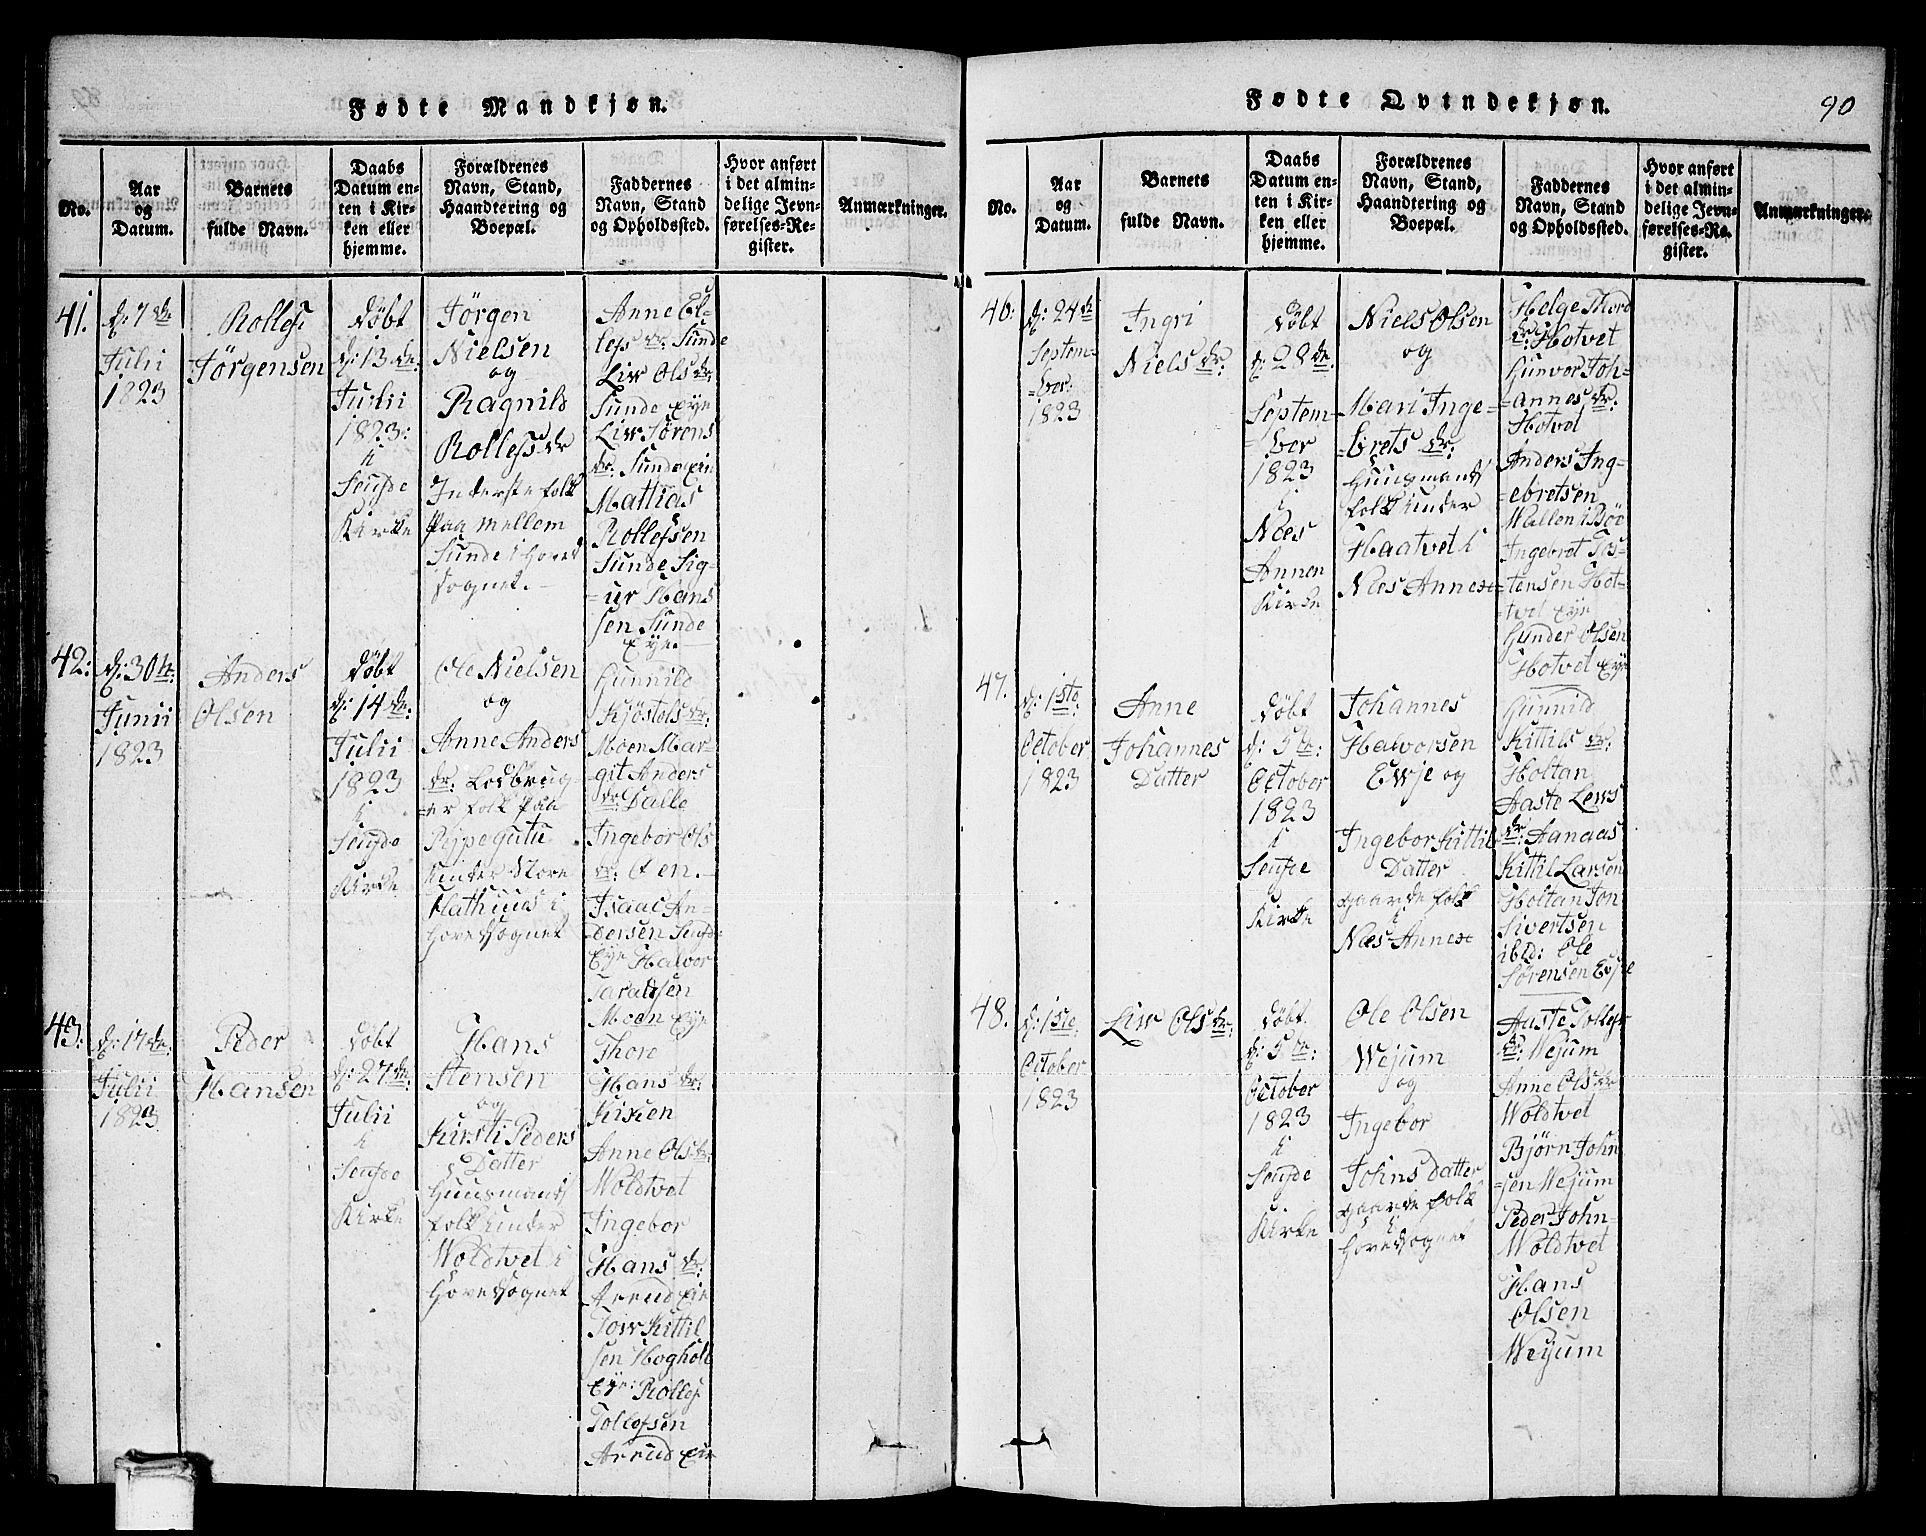 Fødte Mandkjøn.
No.
Aar
og
Datum.
Barnets
fulde Navn.
Daabs
Datum en-
ten i Kir-
ken eller
hjemme.
Forældrenes
Navn, Stand,
Haandtering og
Boepæl.
Faddernes
Navn, Stand
og Opholdssted.
Hvor anført
i det almin-
delige Jevn-
førelses-Re-
gister.
Anmærkninger.
41.
d: 7de
Julii
1823
Rollef
Jörgensen
Döbt
d: 13de
Julii
1823:
i
Seufde
Kirke
Jörgen
Nielsen
og
Ragnild
Rollefs dr
Inderste folk
paa mellem
Sunde i Hoved
sognet.
Anne El-
lefs dr: Sunde
Liw Ols dr:
Sunde Eye
Liw Sörens
dr: Sunde ein
Mattias
Rollefsen
Sunde Sig-
=ur Hans
sen Sunde
Eye.
42:
d: 30te:
Junii
1823
Anders
Olsen
Döbt
d: 14de:
Julii
1823
i
Seufde
Kirke
Ole Nielsen
og
Anne Anders
dr: Lodbrug-
=er folk paa
Pejpegutu
under Store
Kathuus i
Hovedsognet
Gunnild
Kjöstels dr:
Moen Mar-
git Anders
dr: Dalle
Ingebor Ols
dr: Eten.
Isaac An-
dersen Seufd:
Eye Halvor
Taraldsen
Moen Eye
43:
d: 17de:
Julii
1823
Peder
Hansen
Döbt
d: 27de:
Julii
i
Seufde
Kirke
Hans
Stensen
og
Kirsti Peders
Datter
Huusmands
folk under
Woldtvet i
Hovedsognet
Thore
Hans dr:
Kixien
Anne Ols dr:
Woldtvet
Ingebor
Hans dr:
Aarud Eie
Tow Kittil
sen Hoghold
Eye: Rollef
Tollefsen
Aarud Eie
Fødte Qvindekjøn.
90
No.
Aar
og
Datum.
Barnets
fulde Navn.
Daabs
Datum en-
ten i Kir-
ken eller
hjemme.
Forældrenes
Navn, Stand,
Haandtering og
Boepæl.
Faddernes
Navn, Stand
og Opholdssted.
Hvor anført
i det almin-
delige Jevn-
førelses-Re-
gister.
Anmærkninger.
46:
d: 24de
Septem-
=ber:
1823
Ingri
Niels dr:
Döbt
d: 28de.
Septem
=ber
1823
i
Næs
Annex
Kirke
Niels Olsen
og
Mari Inge=
=brets dr:
Huusmands
folk under
Haatvet i
Næs Annex
Helge Thord
dr: Hotvet
Gunvor Joh=
=annes dr:
Hotvet
Anders Ing-
=ebretsen
Wallen i Böe
Ingebret Tos-
=tensen Hot-
=tvet Eye
Gunder Olsen
Hotvet Eye
47.
d: 1ste:
October
1823
Anne
Johannes
Datter
Döbt
d: 5te:
October
1823
i
Seufde
Kirke
Johannes
Halvorsen
Ewje og
Ingebor Kittil
Datter
Gaarde folk
i
Næs Annex
Gunnild
Kittils dr:
Holtan
Aaste Lews
dr: Aanaas
Kittil Larsen
Holtan Jon
Sivertsen
ibid: Ole
Sörensen Evje
48.
d: 1ste:
October
1823
Liw Ols dr:
Döbt
d: 5te:
October
1823
i
Seufde
Kirke
Ole Olsen
Wejum
og
Ingebor
Johns datter
Gaarde folk
i
Hovedsognet
Aaste Tollefs
dr: Wejum
Anne Ols dr
Woldtvet
Björn John
=sen Wejum
Peder John-
Woldtvet
Hans
Olsen
Wejum